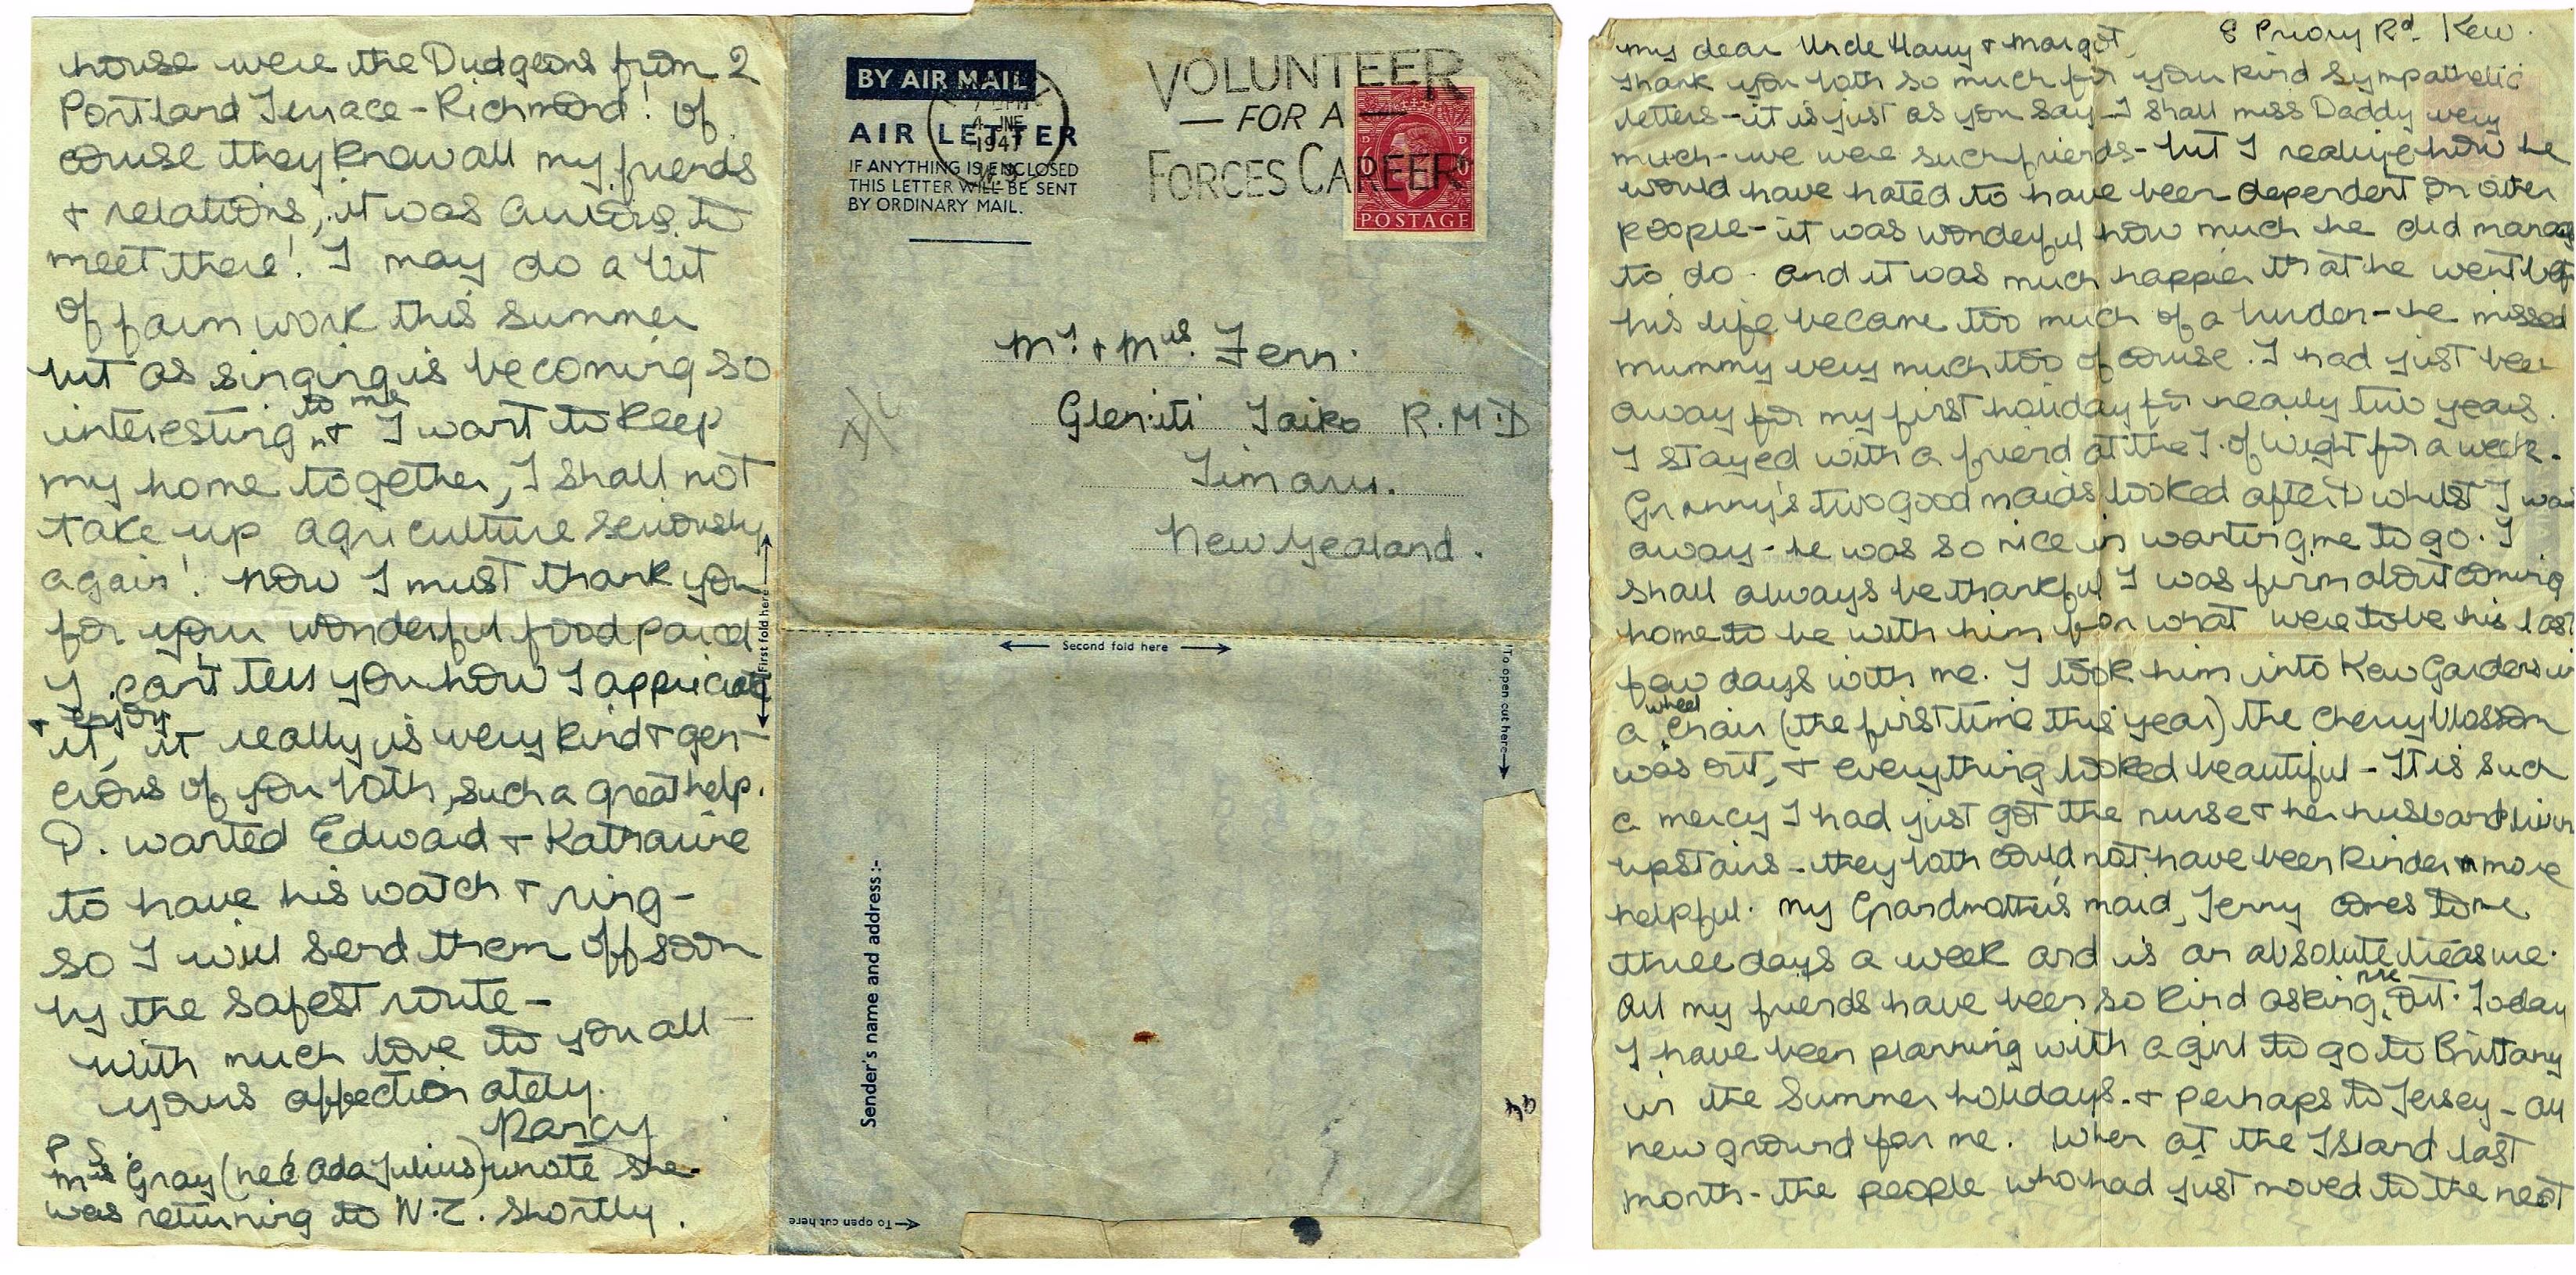 8 Priory Rd. Kew.
My dear Uncle Harry & Margot,
Thank you both so much for your kind sympathetic
letters - it is just as you say - I shall miss Daddy very
much - we were such friends - but I realize how he
would have hated to have been dependent on other
people - it was wonderful how much he did manage
to do. And it was much happier that he went before
his life became too much of a burden - he missed
mummy very much too of course. I had just been
away for my first holiday for nearly two years.
I stayed with a friend at the I. of Wight for a week.
Granny's two good maids looked after D whilst I was
away - he was so nice in wanting me to go. I
shall always be thankful I was firm about coming
home to be with him for what were to be his last
few days with me. I took him into Kew Gardens in
a wheel chair (the first time this year) the cherry blossom
was out, & everything looked beautiful - It is such
a mercy I had just got the nurse & her husband living
upstairs - they both could not have been kinder or more
helpful. My Grandmother's maid, Jenny comes to me
three days a week and is an absolute treasure.
All my friends have been so kind asking me out. Today
I have been planning with a girl to go to Brittany
in the Summer holidays - & perhaps to Jersey - all
new ground for me. When at the Island last
month - the people who had just moved to the next
house were the Dudgeons from 2
Portland Terrace - Richmond! Of
course they knew all my friends
& relations, it was curious to
meet there! I may do a bit
of farm work this summer
but as singing is becoming so
interesting to me & I want to keep
my home together, I shall not
take up agriculture seriously
again! Now I must thank you
for your wonderful food parcel
I can't tell you how I appreciate
& enjoy
it, it really is very kind & gen-
erous of you both, such a great help.
D. wanted Edward & Katharine
to have his watch & ring -
so I will send them off soon
by the safest route -
With much love to you all -
yours affectionately.
Darcy
P.S.
Mrs Gray (neé Ada Julius) wrote she
was returning to N.Z. shortly.
BY AIR MAIL
AIR LETTER
IF ANYTHING IS ENCLOSED
THIS LETTER WILL BE SENT
BY ORDINARY MAIL.
4 JNE
1947
VOLUNTEER
— FOR A —
FORCES CAREER
POSTAGE
Mr. & Mrs. Fenn.
Gleniti Taiko R.M.D
Timaru.
New Zealand.
First fold here
Second fold here
To open cut here
Sender's name and address :-
To open cut here